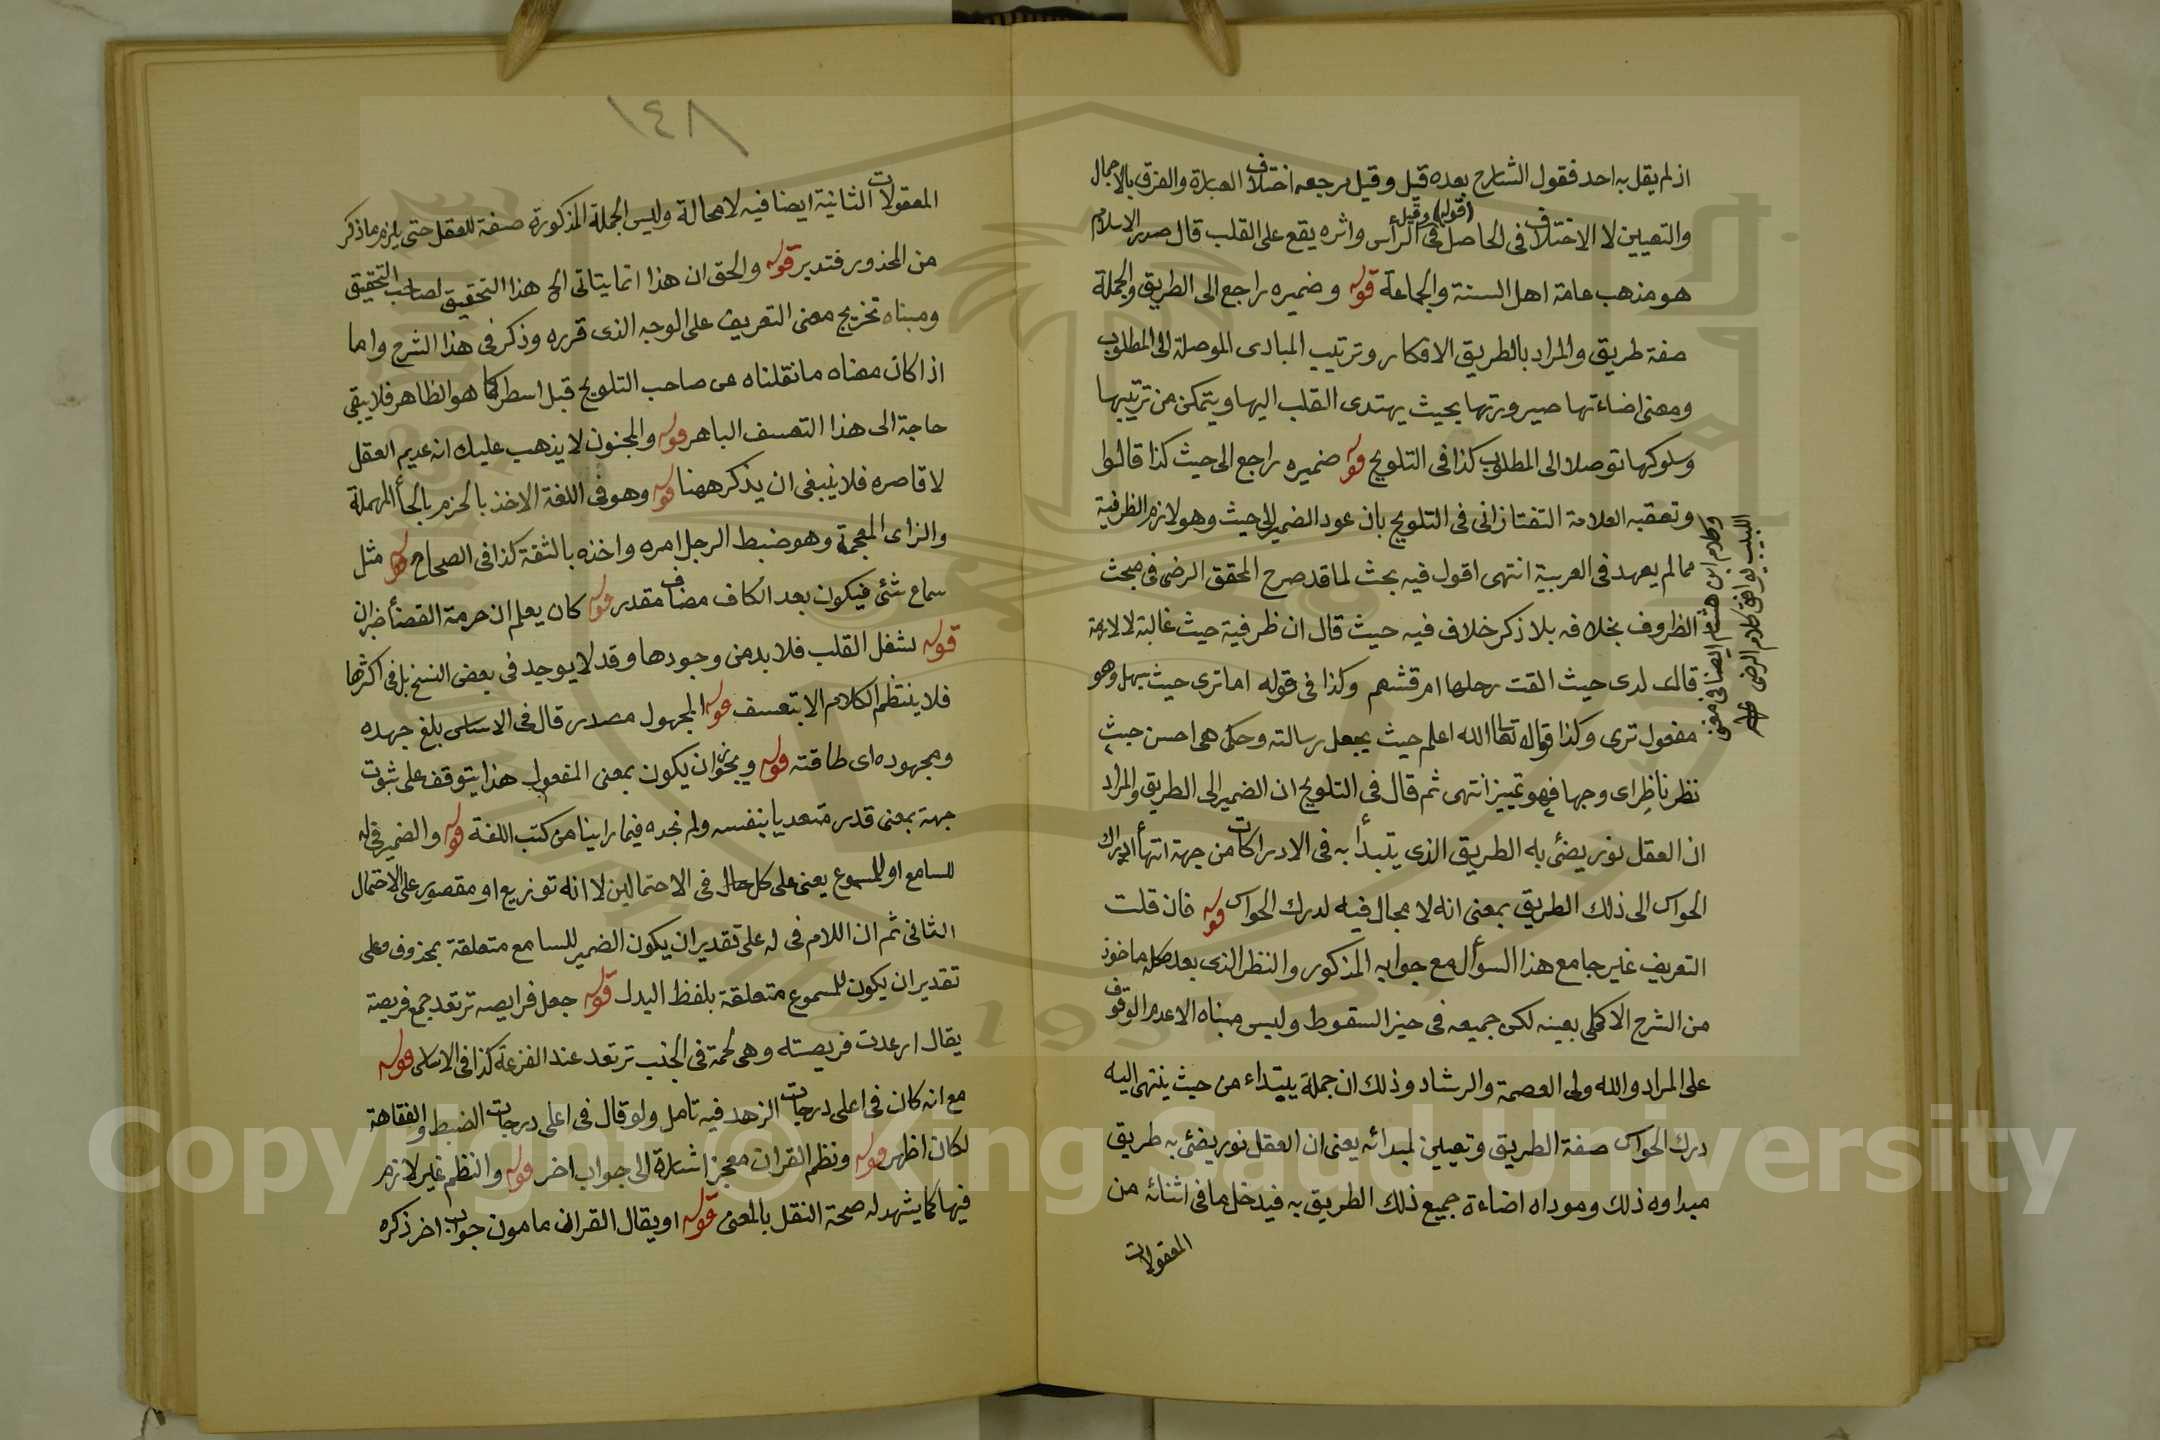 اذ لم يقل به احد فقول الشارح بعده قيل وقيل مرجعه اختلاف العبارة والفرق بالاجمال
والتعيين لا الاختلاف فى الحاصل (قوله) وقيل فى الرأس واثره يقع على القلب قال صدر الاسلام
هو مذهب عامة اهل السنة والجماعة قوله وضميره راجع الى الطريق والجملة
صفة طريق والمراد بالطريق الافكار وترتيب المبادى الموصلة الى المطلوب
ومعنى اضاءتها صيرورتها بحيث يهتدى القلب اليها ويتمكن من ترتيبها
وسلوكها توصلا الى المطلوب كذا فى التلويح قوله ضميره راجع الى حيث كذا قالوا
وتعقبه العلامة التفتازانى فى التلويح بان عود الضمير الى حيث وهو لازم الظرفية
مما لم يعهد فى العربية انتهى اقول فيه بحث لما قد صرح المحقق الرضى فى مبحث
الظروف بخلافه بلا ذكر خلاف فيه حيث قال ان ظرفية حيث غالبة لا لازمة
قال لدى حيث القت رحلها ام قشعم وكذا فى قوله اما ترى حيث سهيل وهو
مفعول ترى وكذا قوله تعالى الله اعلم حيث يجعل رسالته وحكى هى احسن حيث
نظر ناظر اى وجها فهو تمييز انتهى ثم قال فى التلويح ان الضمير الى الطريق والمراد
ان العقل نور يضئ به الطريق الذى يتبدأ به فى الادراكات من جهة انتهأ ادراك
الحواس الى ذلك الطريق بمعنى انه لا مجال فيه لدرك الحواس قوله فان قلت
التعريف غير جامع هذا السؤال مع جوابه المذكور والنظر الذى بعد كله ماخوذ
من الشرح الاكملى بعينه لكن جميعه فى حيز السقوط وليس مبناه الا عدم الوقوف
على المراد والله ولى العصمة والرشاد وذلك ان جملة يبتداء من حيث ينتهى اليه
درك الحواس صفة الطريق وتعيين لمبدائه يعنى ان العقل نور يضئ به طريق
مبداوه ذلك وموداه اضاءة جميع ذلك الطريق به فيدخل ما فى اثنائه من
المعقولات
وكلام ابن هشام ايضا فى مغنى
اللبيب يوافق كلام الرضى
٨٤١
المعقولات الثانية ايضا فيه لا محالة وليس الجملة المذكورة صفة للعقل حتى يلزم ما ذكر
من المحذور فتدبر قوله والحق ان هذا انما يتاتى الخ هذا التحقيق لصاحب التحقيق
ومبناه تخريج معنى التعريف على الوجه الذى قرره وذكر فى هذا الشرح واما
اذا كان معناه ما نقلناه عن صاحب التلويح قبل اسطر كما هو الظاهر فلا يبقى
حاجة الى هذا التعسف الباهر قوله والمجنون لا يذهب عليك انه عديم العقل
لا قاصره فلا ينبغى ان يذكر ههنا قوله وهو فى اللغة الاخذ بالحزم بالحأ المهملة
والزاى المعجمة وهو ضبط الرجل امره واخذه بالثقة كذا فى الصحاح قوله مثل
سماع شئ فيكون بعد الكاف مضاف مقدر قوله كان يعلم ان حرمة القضأ خبر ان
قوله لشغل القلب فلا بد من وجودها وقد لا يوجد فى بعض النسخ بل فى اكثرها
فلا ينتظم الكلام الا بتعسف قوله المجهول مصدر قال فى الاساس بلغ جهده
ومجهوده اى طاقته قوله ويجوز ان يكون بمعنى المفعول هذا يتوقف على ثبوت
جهة بمعنى قدر متعديا بنفسه ولم نجده فيما راينا من كتب اللغة قوله والضمير فى له
للسامع او للمسموع يعنى على كل حال فى الاحتمالين لا انه توزيع او مقصور على الاحتمال
الثانى ثم ان اللام فى له على تقدير ان يكون الضمير للسامع متعلقة بمحذوف وعلى
تقدير ان يكون للمسموع متعلقة بلفظ البدل قوله جعل فرايصه ترتعد جمع فريصة
يقال ارعدت فريصته وهى لحمة فى الجنب ترتعد عند الفزعة كذا فى الاساس قوله
مع انه كان فى اعلى درجات الزهد فيه تامل ولو قال فى اعلى درجات الضبط والفقاهة
لكان اظهر قوله ونظم القران معجز اشارة الى جواب اخر قوله والنظم غير لازم
فيها كما يشهد له صحة النقل بالمعنى قوله او يقال القران مامون جواب اخر ذكره
Copyright © King Saud University